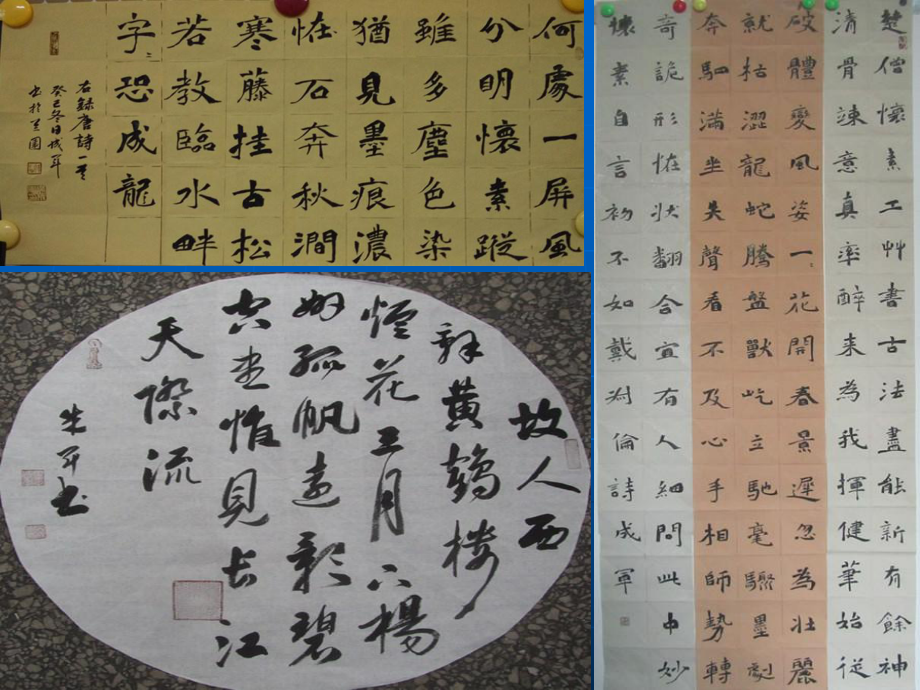 何處一屏風
分明懷素蹤
雖多塵色染
猶見墨痕濃
恠石奔秋澗
寒藤挂古松
若教臨水畔
字〻恐成龍
右錄唐詩一首
癸巳冬日成軍
故人西
辞黄鶴楼
煙花三月下楊
州孤帆遠影碧
空盡惟見长江
天際流
朱平书
楚僧懷素工艸書古法盡能新有餘神
清骨竦意真率醉来為我揮健筆始從
破體變風姿一〻花開春景遲忽為壯麗
就枯澀龍蛇騰盤獸屹立馳毫驟墨劇
奔駟滿坐失聲看不及心手相師勢轉
奇詭形恠狀翻合宜有人細問此中妙
懷素自言初不如戴叔倫詩成軍